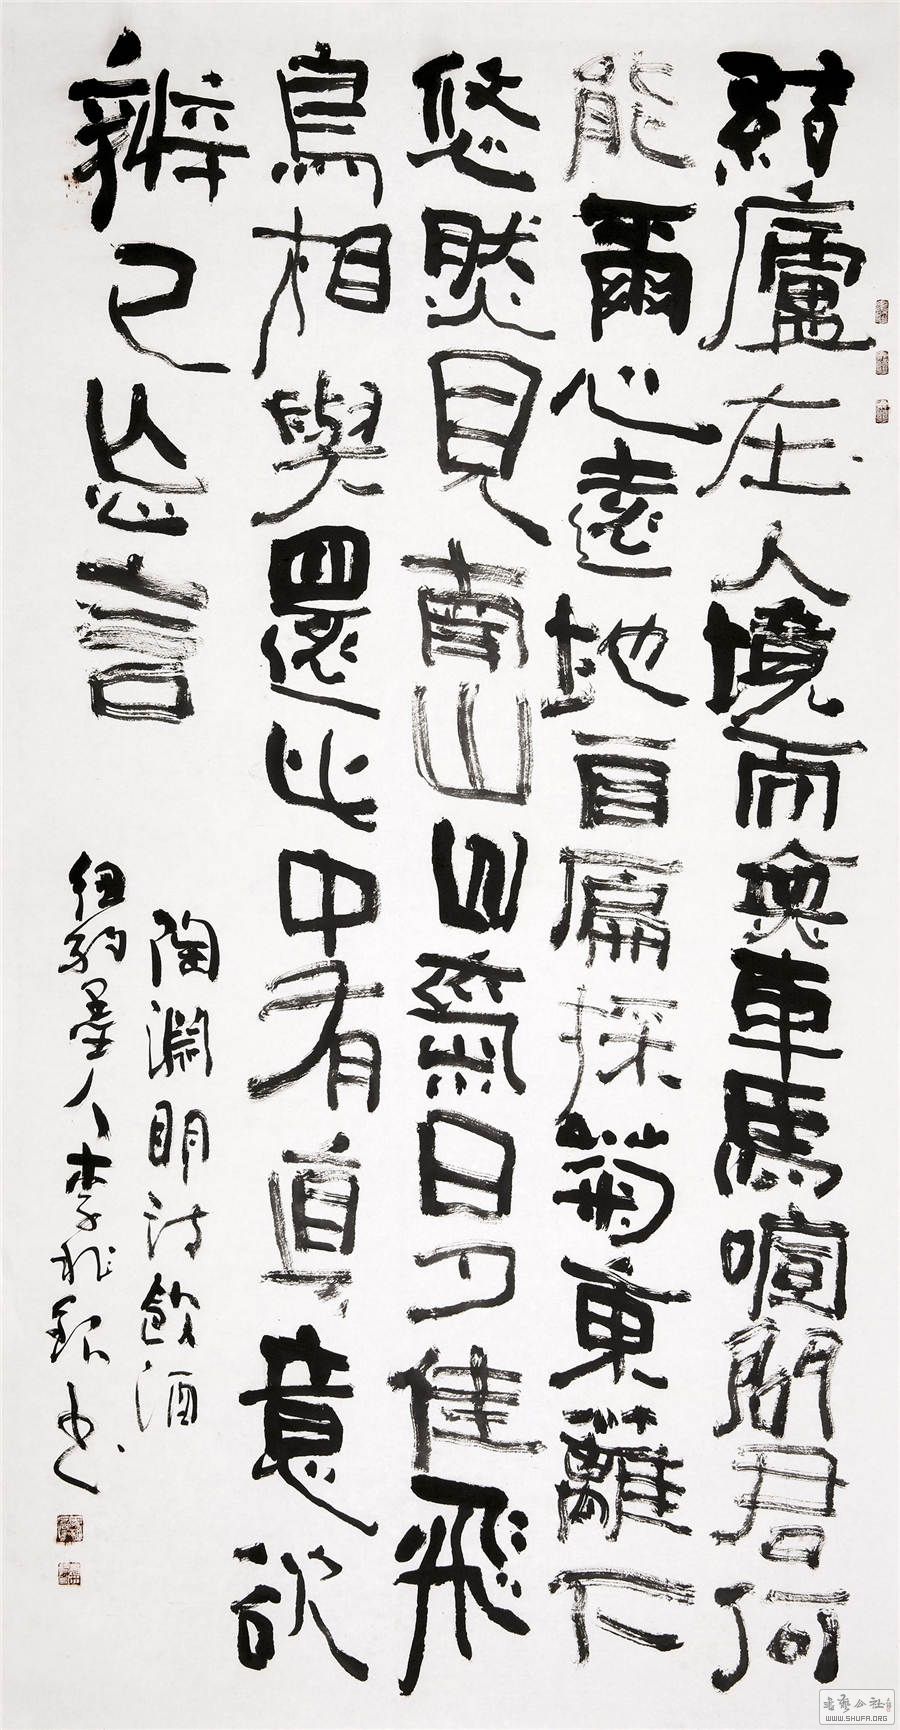 結廬在人境而無車馬喧問君何
能爾心遠地自偏採菊東籬下
悠然見南山山氣日夕佳飛
鳥相與還此中有真意欲
辨已忘言
陶淵明詩飲酒
紐約墨人李兆銀書
書藝公社
WWW.SHUFA.ORG